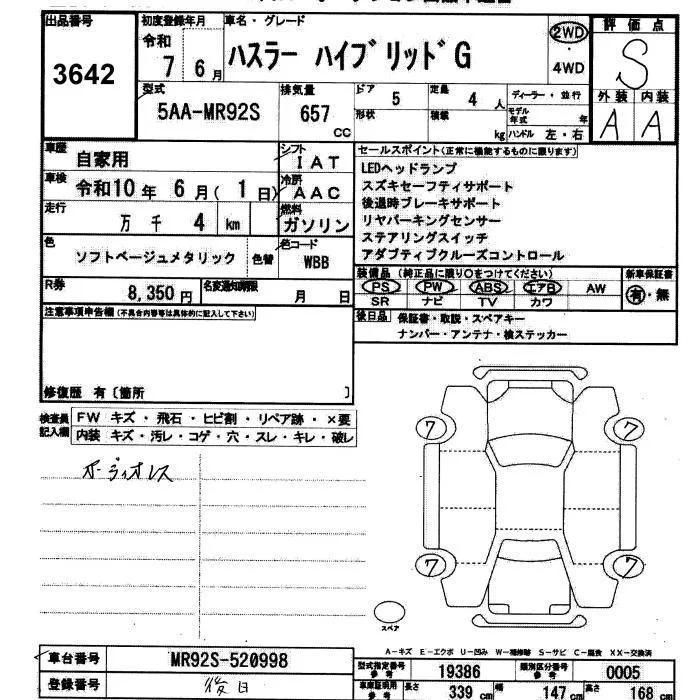 出品番号
3642
初度登録年月
令和
7 6月
車名・グレード
ハスラー ハイブリッドG
2WD
・
4WD
評価点
S
外装 内装
A A
型式
5AA-MR92S
排気量
657
CC
ドア
5
定員
4 人
形状
積載
kg
ディーラー・並行
モデル年式 年
ハンドル 左・右
車歴
自家用
シフト
IAT
車検
令和10年 6月( 1日)
冷房
AAC
走行
万 千 4 km
燃料
ガソリン
色
ソフトベージュメタリック
色替
色コード
WBB
R券
8,350円
名変通知期限
月 日
セールスポイント(正常に機能するものに限ります)
LEDヘッドランプ
スズキセーフティサポート
後退時ブレーキサポート
リヤパーキングセンサー
ステアリングスイッチ
アダプティブクルーズコントロール
装備品(純正品に限り○をつけてください)
新車保証書
PS PW ABS エアB AW
有・無
SR ナビ TV カワ
後日品 保証書・取説・スペアキー
ナンバー・アンテナ・検ステッカー
注意事項申告欄(不具合内容等は具体的に記入して下さい)
修復歴 有〔箇所 〕
検査員記入欄
FW キズ・飛石・ヒビ割・リペア跡・×要
内装 キズ・汚レ・コゲ・穴・スレ・キレ・破レ
オーディオレス
7 7
7 7
スペア
A-キズ E-エクボ U-凹み W-補修跡 S-サビ C-腐食 XX-交換済
車台番号
MR92S-520998
登録番号
後日
型式指定番号
参考
19386
類別区分番号
参考
0005
車庫証明用
参考
長さ
339 cm
幅
147 cm
高さ
168 cm